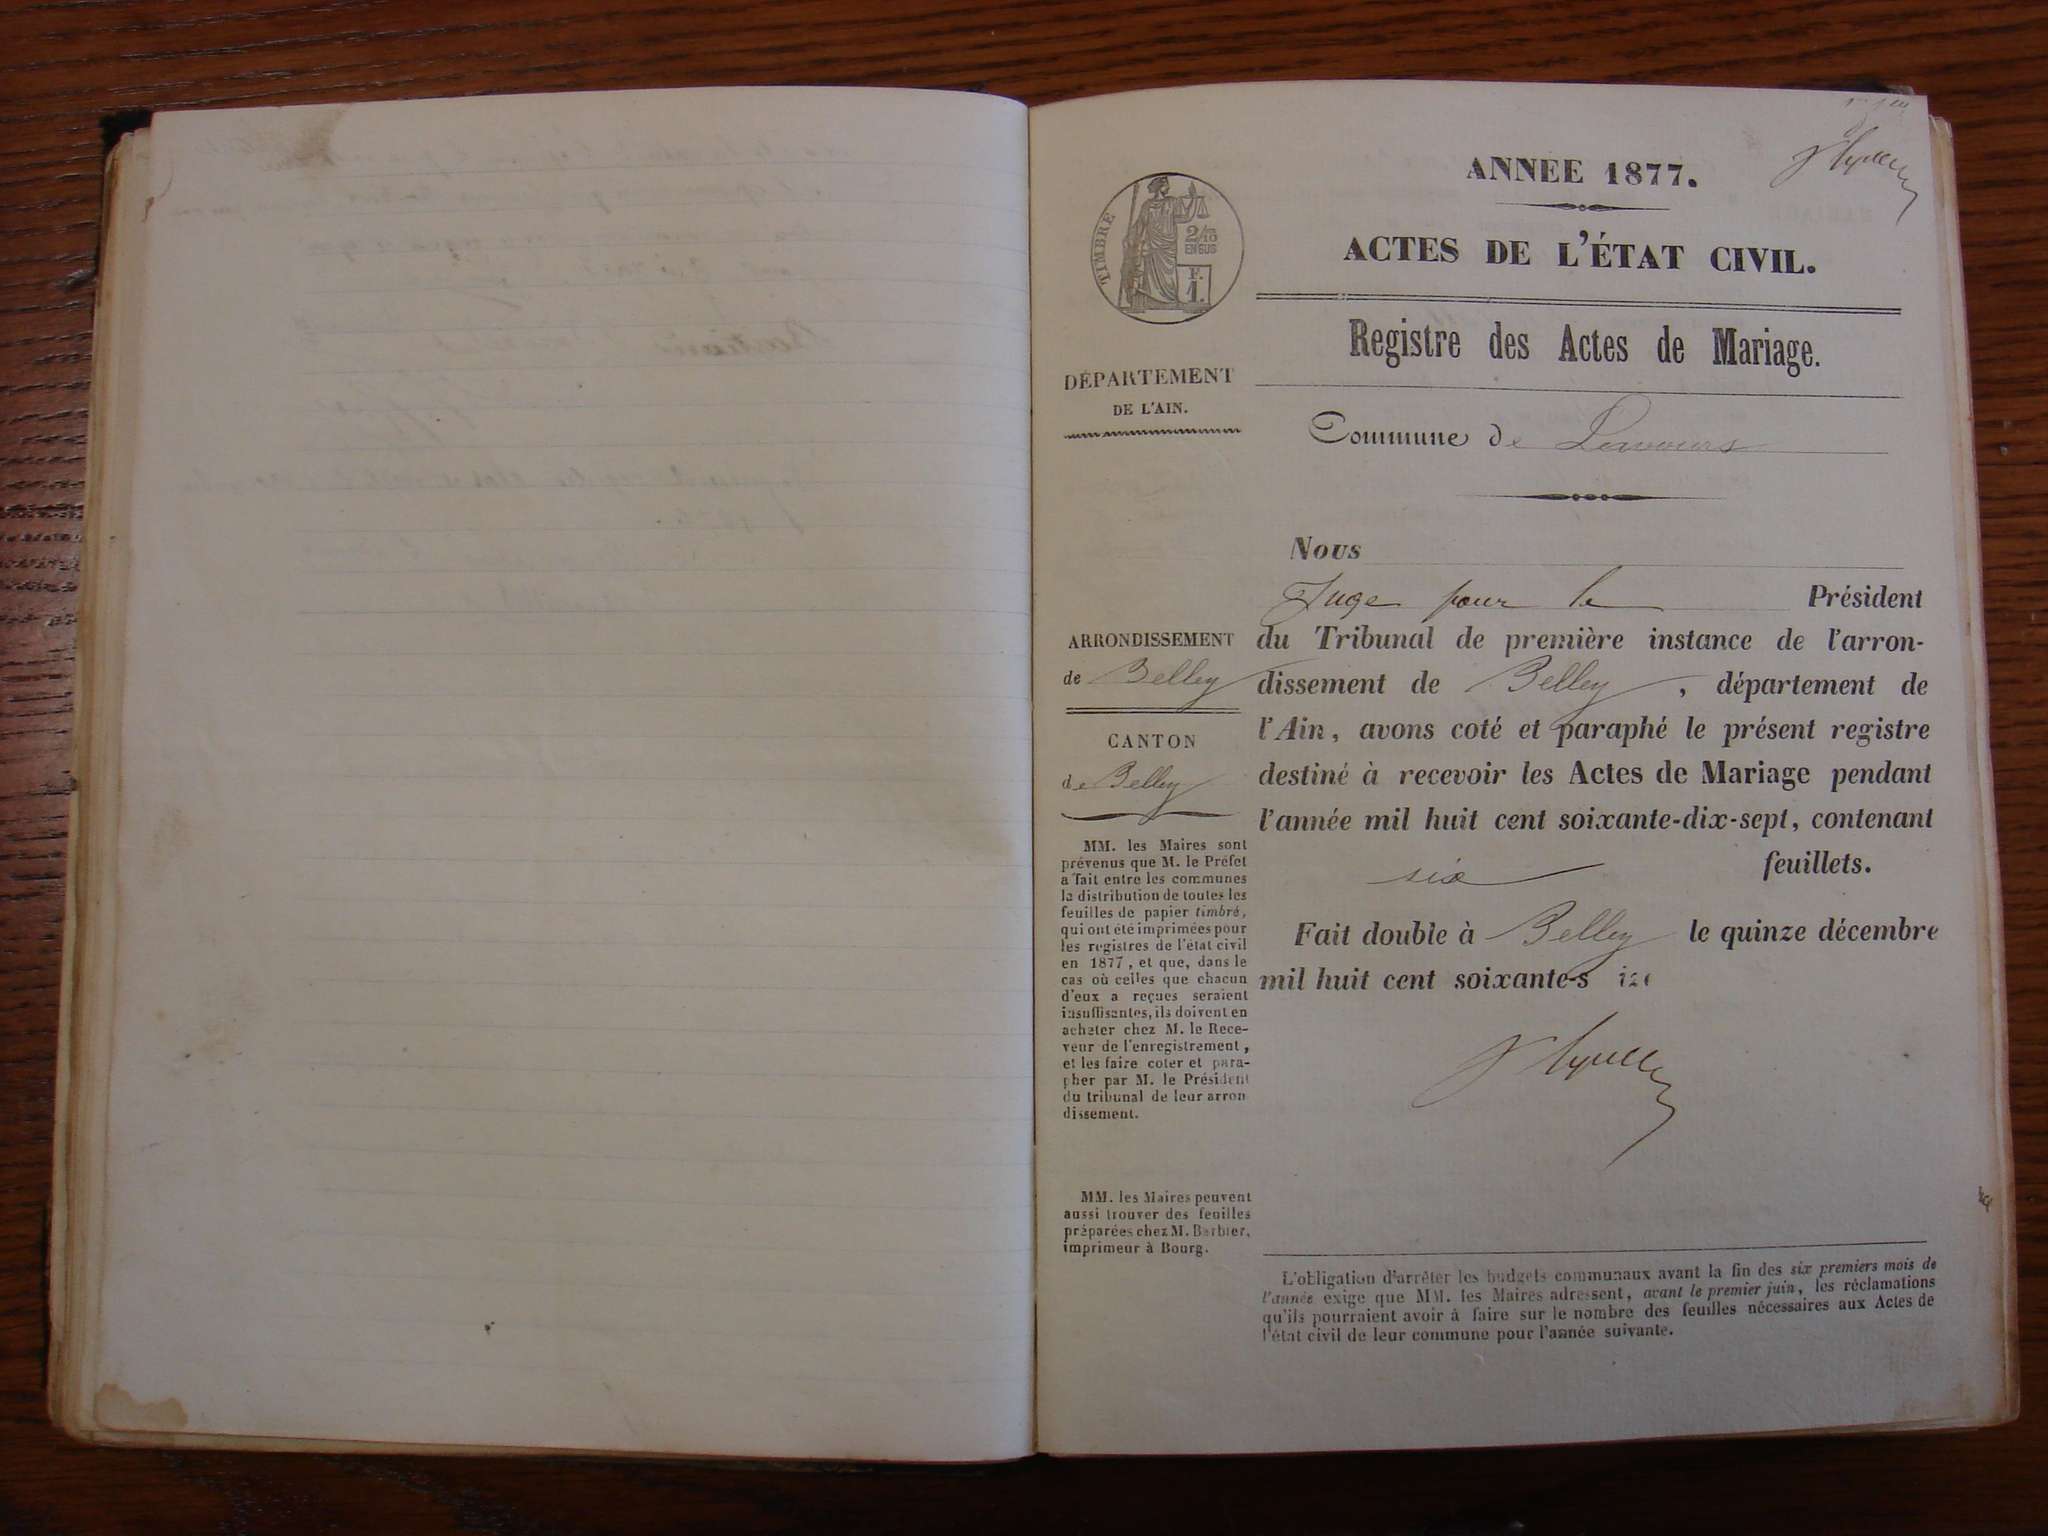 ANNEE 1877.
ACTES DE L'ÉTAT CIVIL.
Registre des Actes de Mariage.
TIMBRE
2/10
EN SUS
F.
1.
DÉPARTEMENT
DE L'AIN.
Commune de
Nous
Juge pour le Président
du Tribunal de première instance de l'arron-
dissement de Belley, département de
l'Ain, avons coté et paraphé le présent registre
destiné à recevoir les Actes de Mariage pendant
l'année mil huit cent soixante-dix-sept, contenant
six feuillets.
Fait double à Belley le quinze décembre
mil huit cent soixante-s
ARRONDISSEMENT
de Belley
CANTON
de Belley
MM. les Maires sont
prévenus que M. le Préfet
a fait entre les communes
la distribution de toutes les
feuilles de papier timbré,
qui ont été imprimées pour
les registres de l'état civil
en 1877, et que, dans le
cas où celles que chacun
d'eux a reçues seraient
insuffisantes, ils doivent en
acheter chez M. le Rece-
veur de l'enregistrement,
et les faire coter et para-
pher par M. le Président
du tribunal de leur arron
dissement.
MM. les Maires peuvent
aussi trouver des feuilles
préparées chez M. Barbier,
imprimeur à Bourg.
L'obligation d'arrêter les budgets communaux avant la fin des six premiers mois de
l'année exige que MM. les Maires adressent, avant le premier juin, les réclamations
qu'ils pourraient avoir à faire sur le nombre des feuilles nécessaires aux Actes de
l'état civil de leur commune pour l'année suivante.